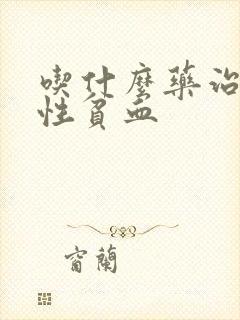 喫什麼藥治
性貧血
窗蘭